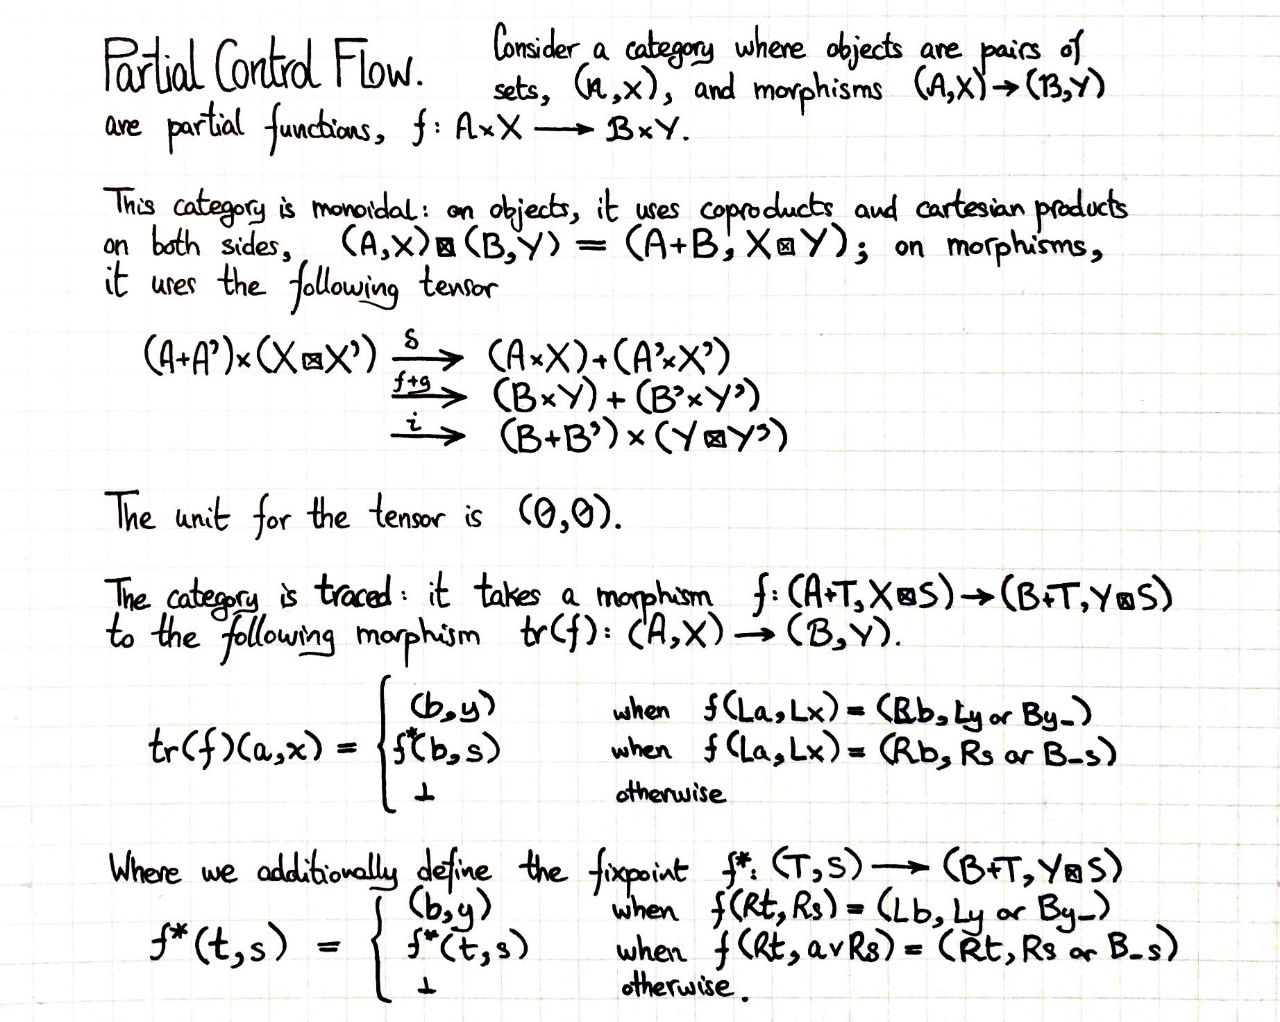 Partial Control Flow. Consider a category where objects are pairs of
sets, (A,X), and morphisms (A,X)→(B,Y)
are partial functions, f: A×X ⟶ B×Y.
This category is monoidal: on objects, it uses coproducts and cartesian products
on both sides, (A,X)⊠(B,Y) = (A+B, X⊠Y); on morphisms,
it uses the following tensor
(A+A')×(X⊠X') —δ→ (A×X)+(A'×X')
—f+g→ (B×Y) + (B'×Y')
—i→ (B+B') × (Y⊠Y')
The unit for the tensor is (0,0).
The category is traced: it takes a morphism f: (A+T, X⊠S)→(B+T, Y⊠S)
to the following morphism tr(f): (A,X) → (B,Y).
(b,y) when f(La,Lx) = (Rb, Ly or By_)
tr(f)(a,x) = { f*(b,s) when f(La,Lx) = (Rb, Rs or B_s)
⊥ otherwise
Where we additionally define the fixpoint f*: (T,S) ⟶ (B+T, Y⊠S)
(b,y) when f(Rt,Rs) = (Lb, Ly or By_)
f*(t,s) = { f*(t,s) when f(Rt, avRs) = (Rt, Rs or B_s)
⊥ otherwise.